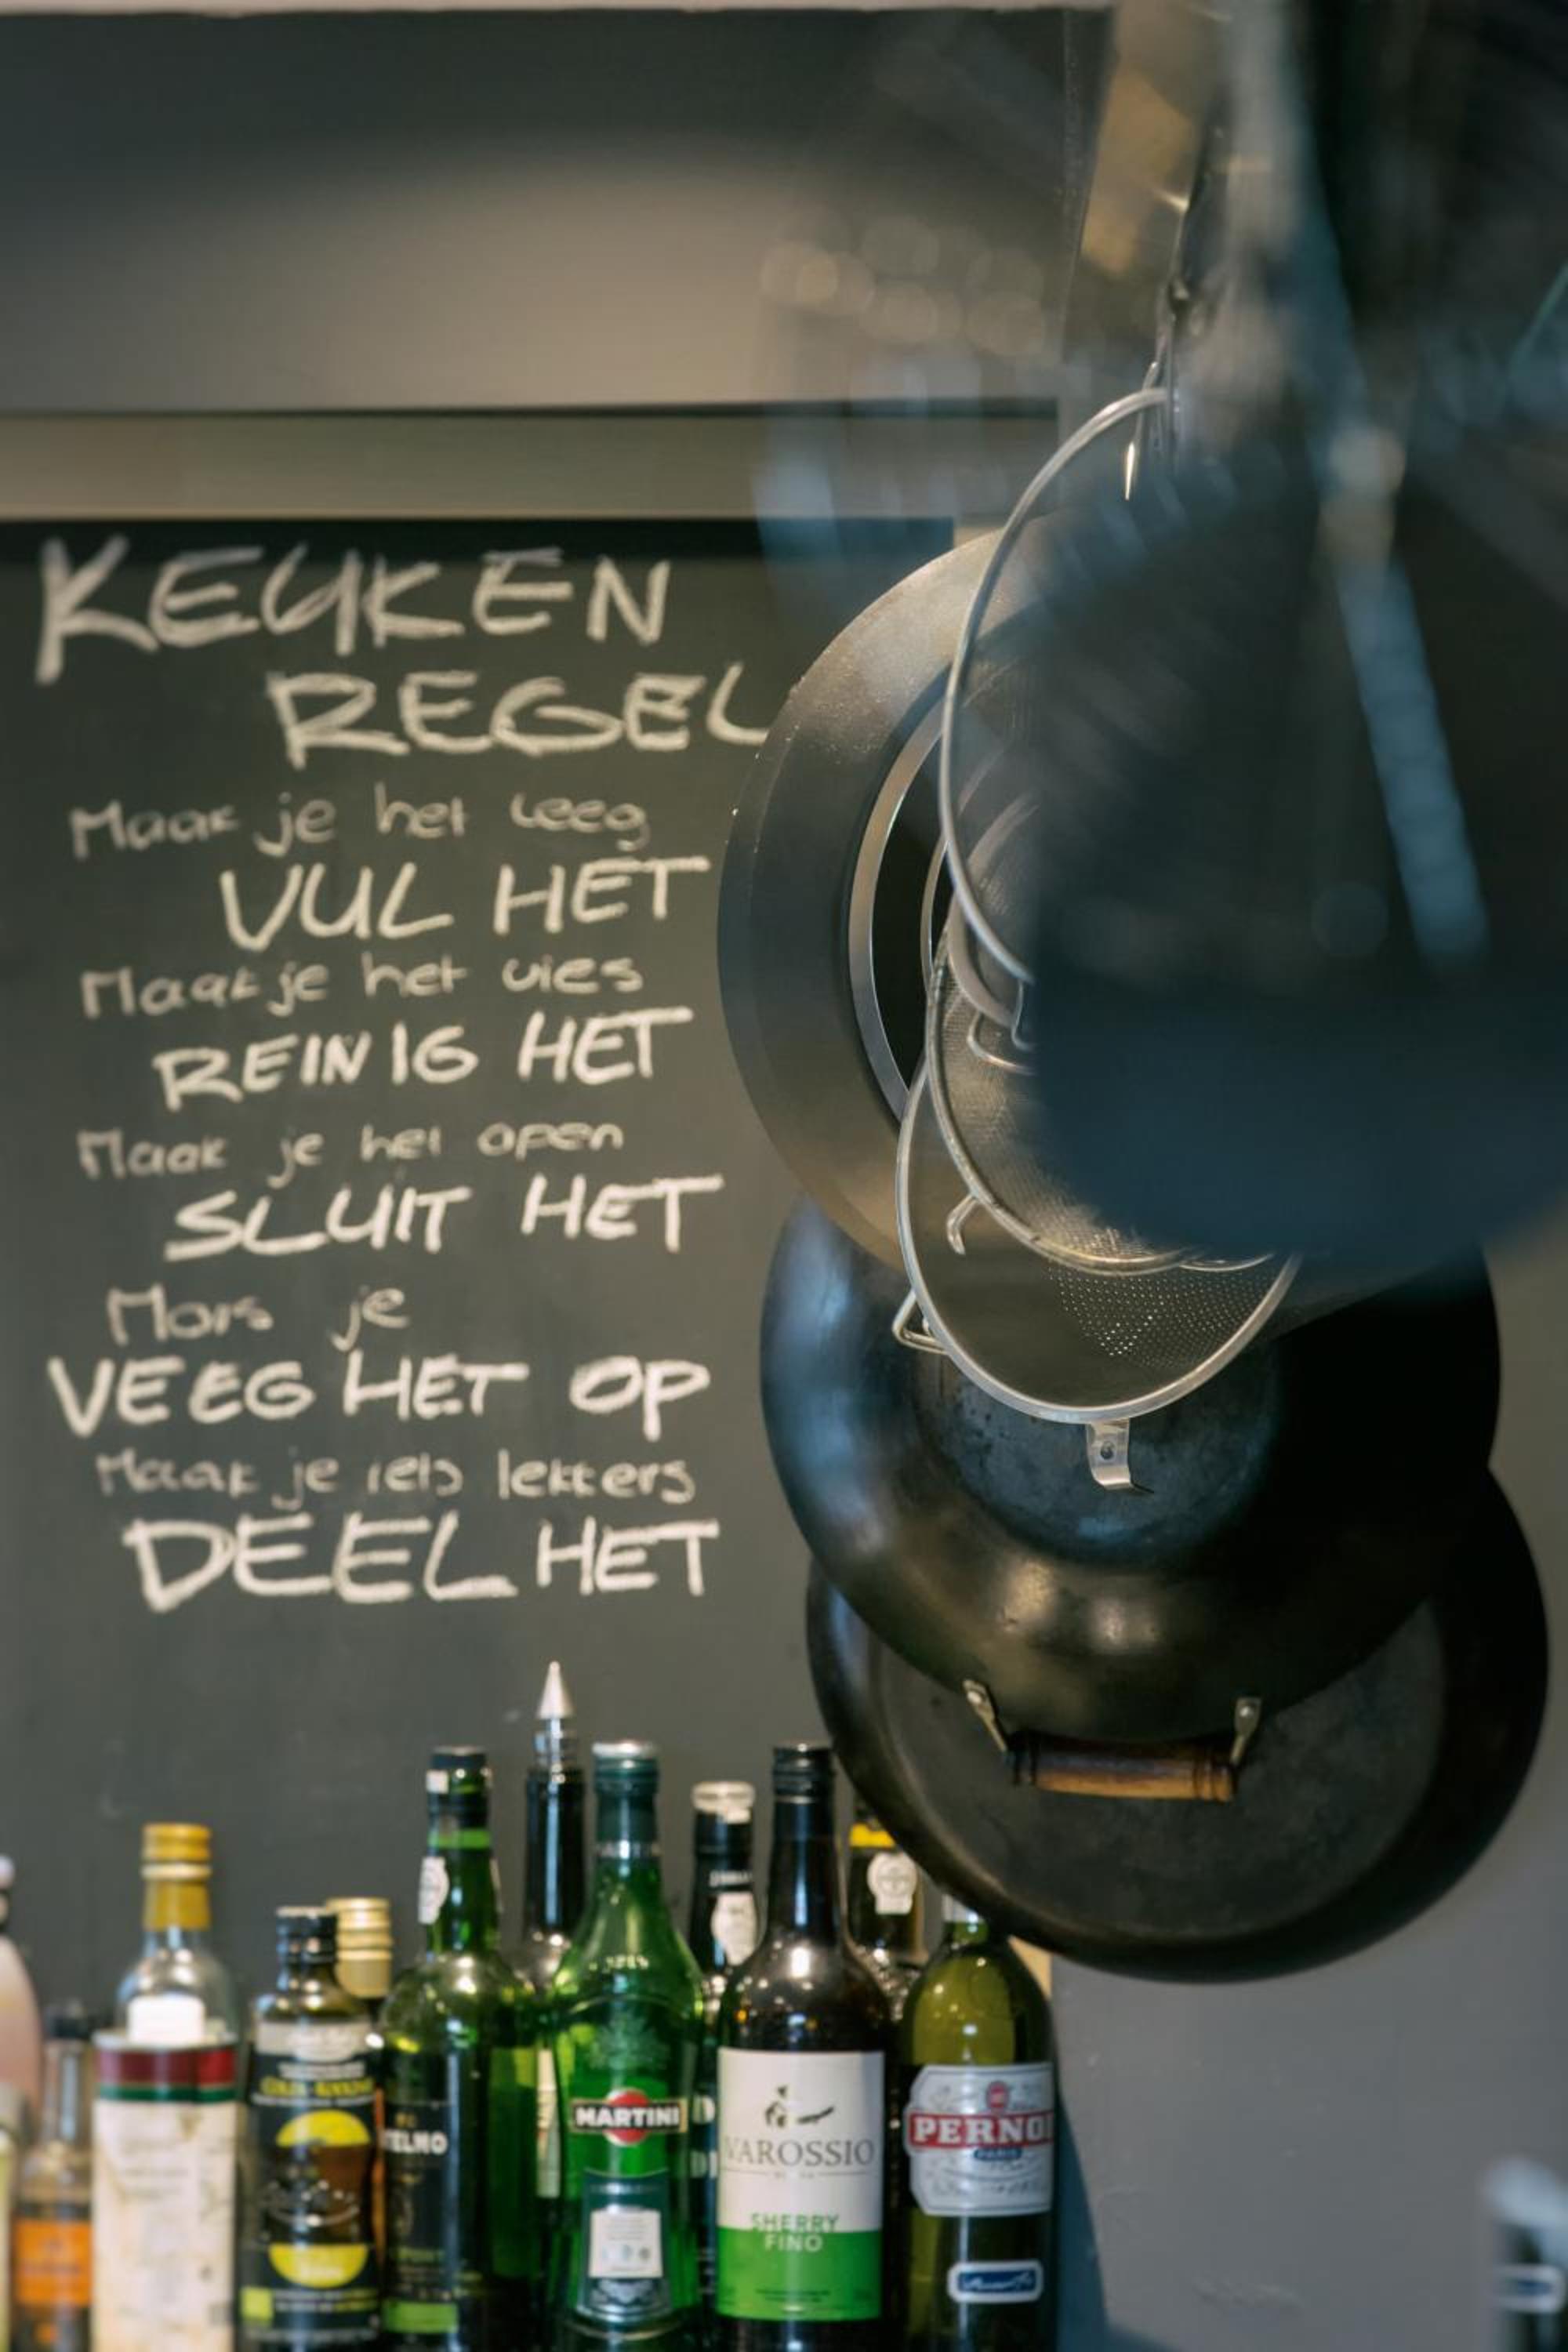 KEUKEN
REGEL
Maak je het leeg
VUL HET
Maak je het vies
REINIG HET
Maak je het open
SLUIT HET
Mors je
VEEG HET OP
Maak je iets lekkers
DEEL HET
MARTINI
VAROSSIO
SHERRY
FINO
PERNO
PARIS